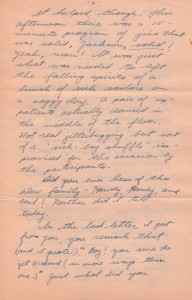 -2-
It helped though. This
afternoon there was a 15-
minute program of jive that
was solid, Jackson, solid!
Yeah, man! It was just
what was needed to lift
the falling spirits of a
bunch of sick sailors on
a soggy day. A pair of up-
patients actually danced in
the middle of the floor.
Not real jitterbugging but sort
of a "sick-bay shuffle" im-
provised for the occasion by
the participants.
Did you ever hear of the
allen family - Howdy, Honey, and
and I neither did I till
today.
In the last letter I got
from you, you remark that
(and I quote) "Boy! you sure do
get around (in more ways than
one)." Just what did you